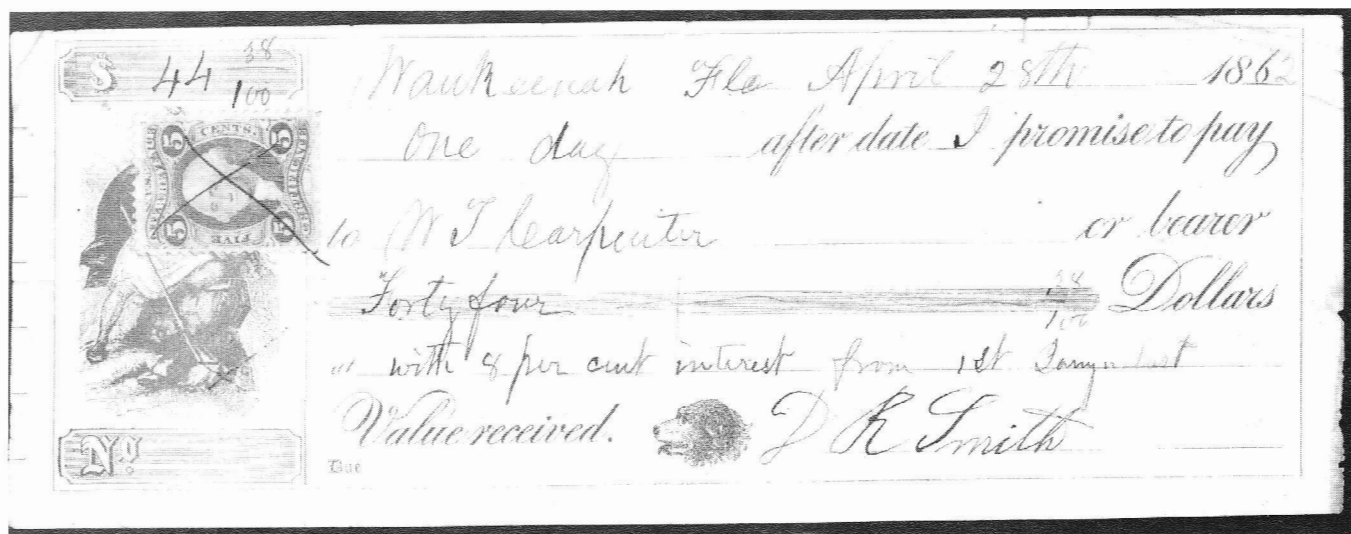 $ 44 38/100
Waukeenah Fla April 28th 1862
One day after date I promise to pay
to W T Carpenter or bearer
Forty four 38/100 Dollars
" with 8 per cent interest from 1st last
Value received. D R Smith
No.
Due
5 CENTS. 5
5 FIVE 5